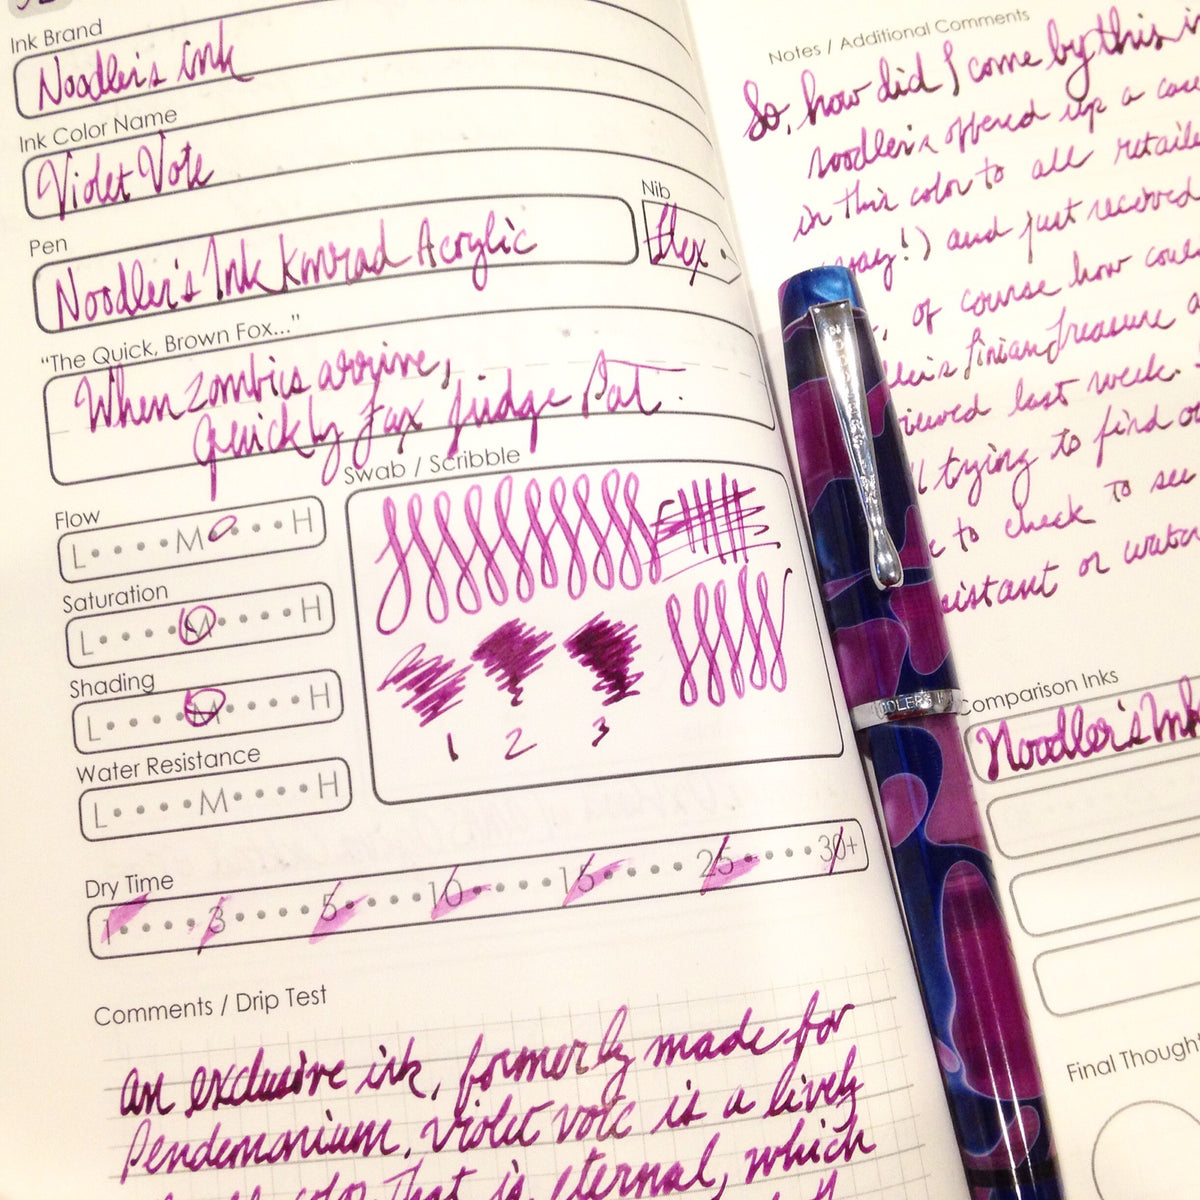 Ink Brand
Noodler's Ink
Ink Color Name
Violet Vote
Pen
Noodler's Ink Konrad Acrylic
Nib
flex
"The Quick, Brown Fox..."
When zombies arrive,
quickly fax judge Pat.
Flow
L M H
Saturation
L M H
Shading
L M H
Water Resistance
L M H
Swab / Scribble
1 2 3
Dry Time
1 3 5 10 15 25 30+
Comments / Drip Test
An exclusive ink, formerly made for
Pendemonium, Violet Vote is a lively
color that is eternal, which
Notes / Additional Comments
So, how did I come by this
Noodler's offered up a
in this color to all
!) and just received
, of course how
Finian Treasure
last week.
trying to find
to check to see
or
Comparison Inks
Noodler's Ink
Final Though